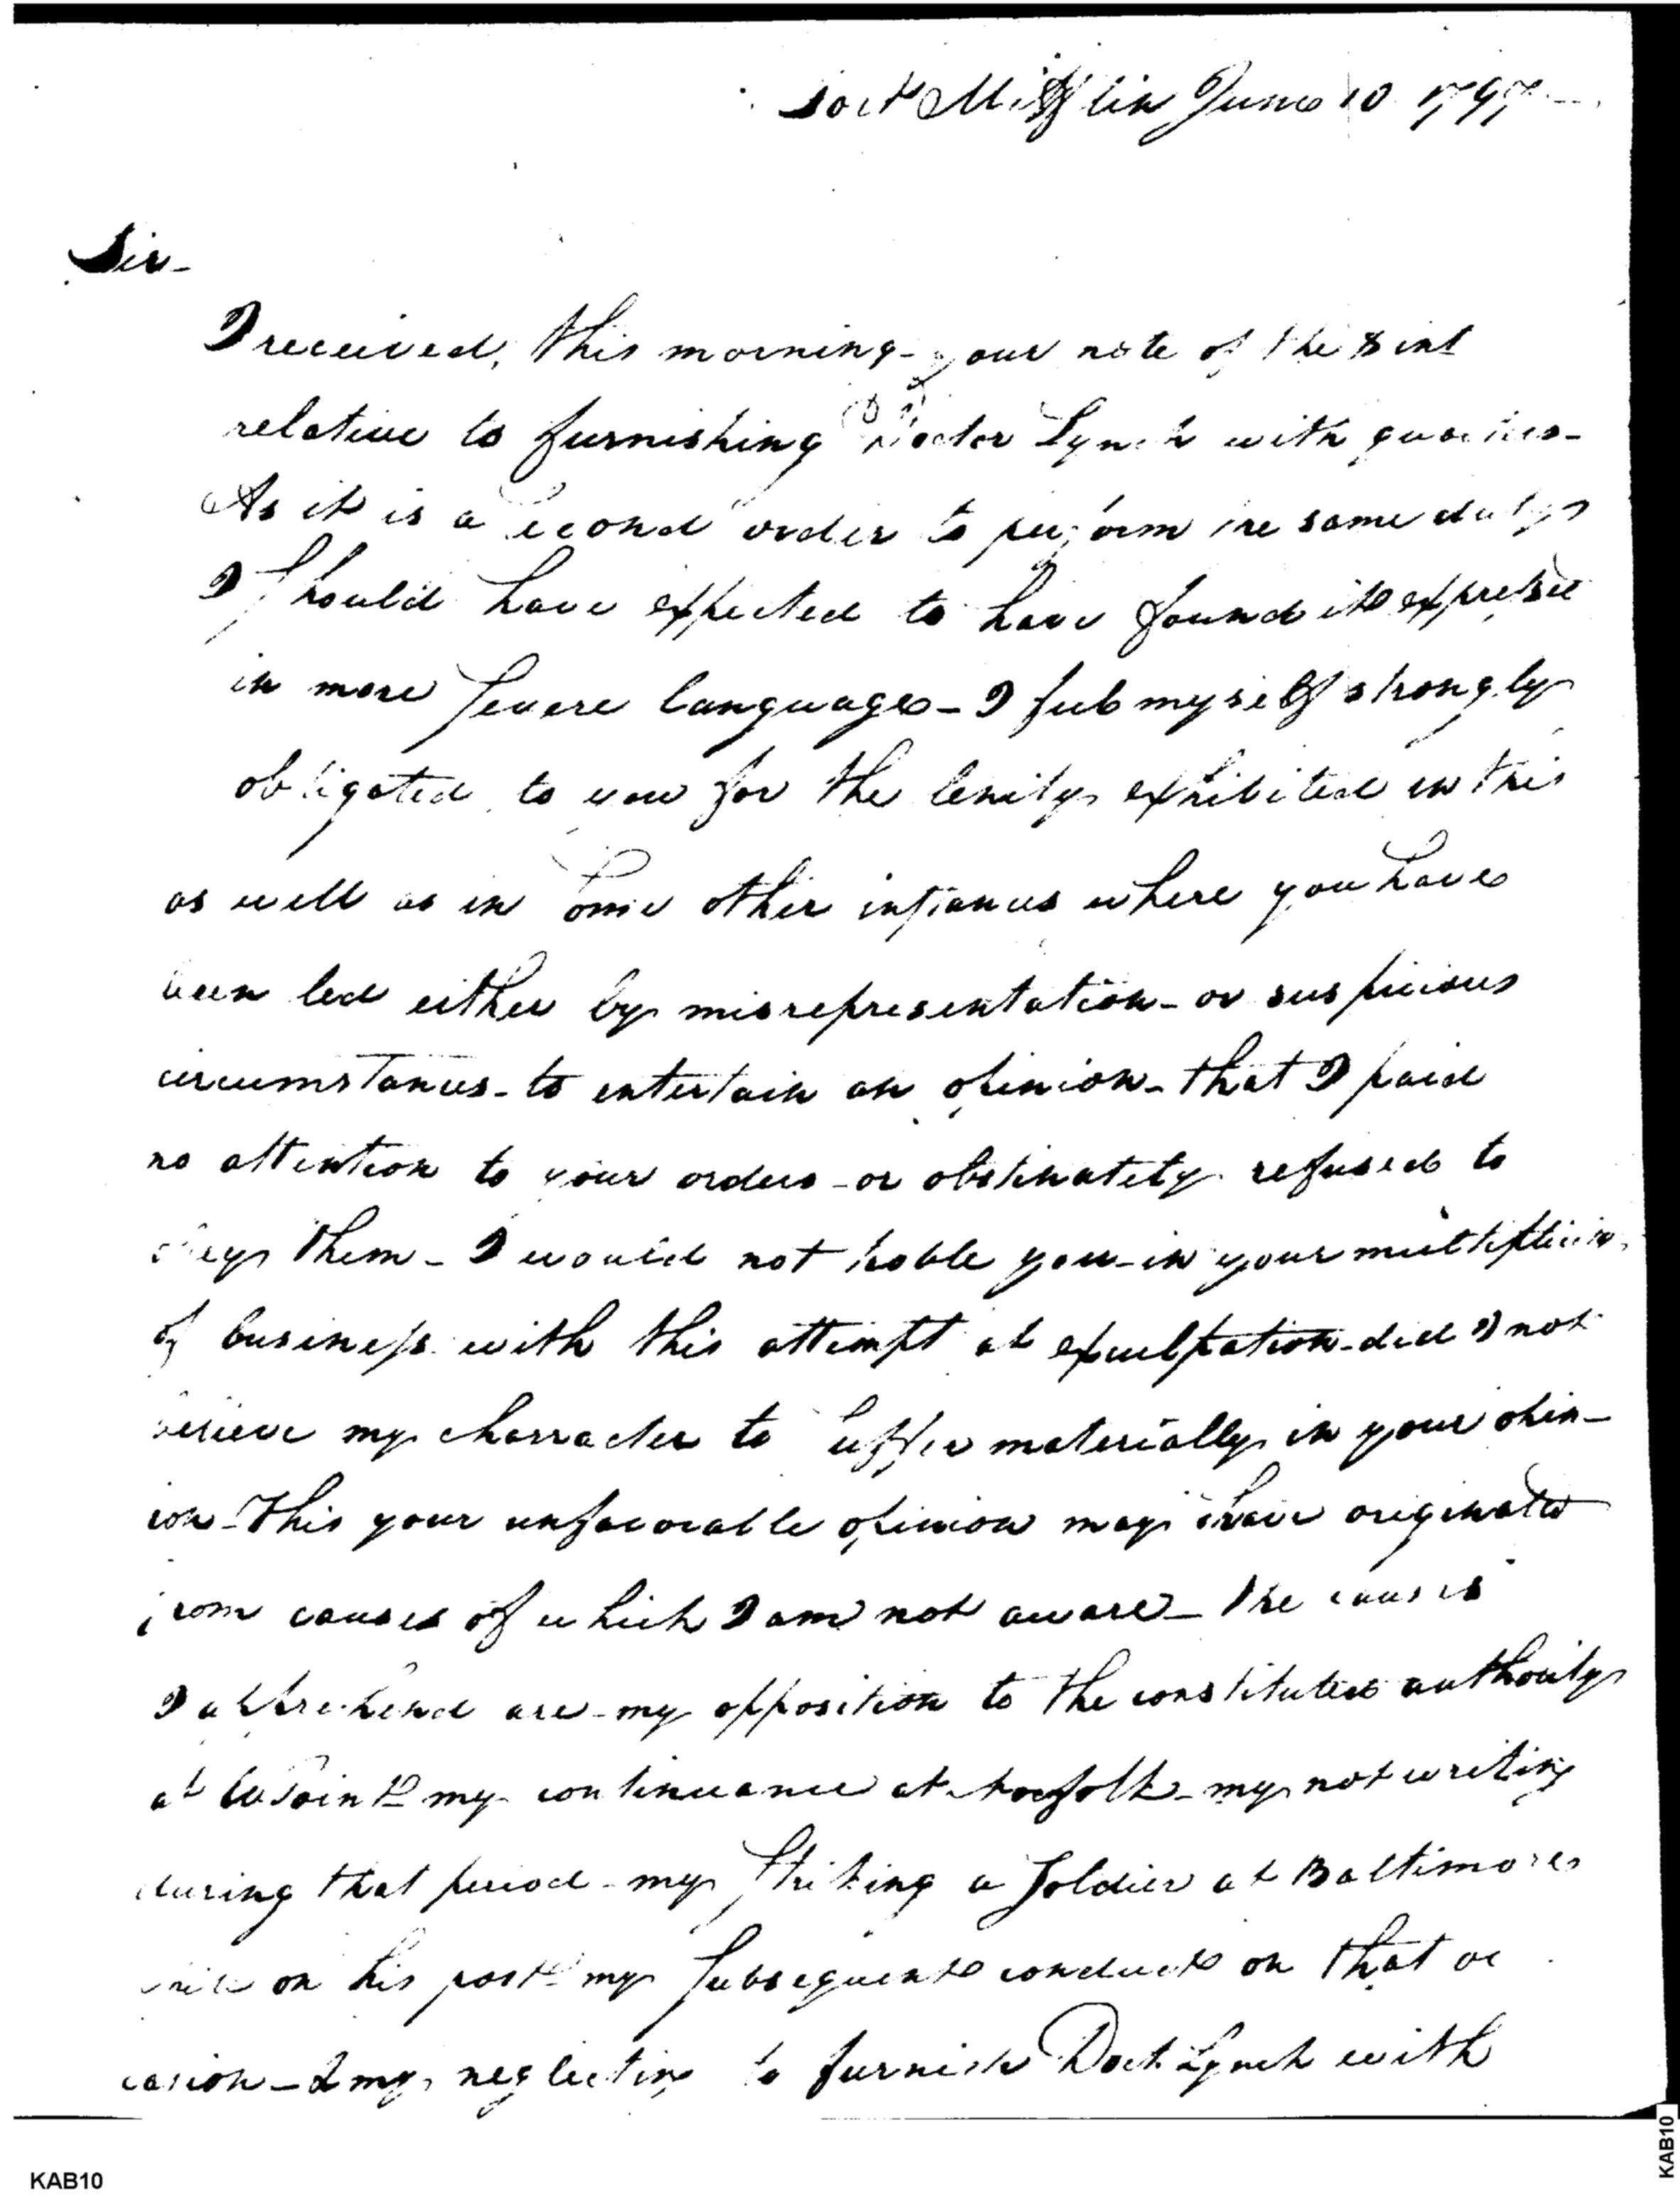 Fort Mifflin June 10 1797
Sir-
I received, this morning- your note of the 8 inst
relative to furnishing Doctor Lynch with quarters-
As it is a second order to perform the same duty
I should have expected to have found it expressed
in more severe language- I feel myself strongly
obligated to you for the lenity exhibited in this
as well as in some other instances where you have
been led either by misrepresentation- or suspicious
circumstances- to entertain an opinion- that I paid
no attention to your orders- or obstinately refused to
obey them- I would not troble you- in your multiplicity
of business with this attempt at exculpation- did I not
believe my charracter to suffer materially in your opin-
ion- This your unfavorable opinion may have originated
from causes of which I am not aware- The causes
I apprehend are- my opposition to the constituted authority
at W Point- my continuance at Norfolk- my not writing
during that period- my striking a soldier at Baltimore
while on his post- my subsequent conduct on that oc
casion- & my neglecting to furnish Doct Lynch with
KAB10
KAB10